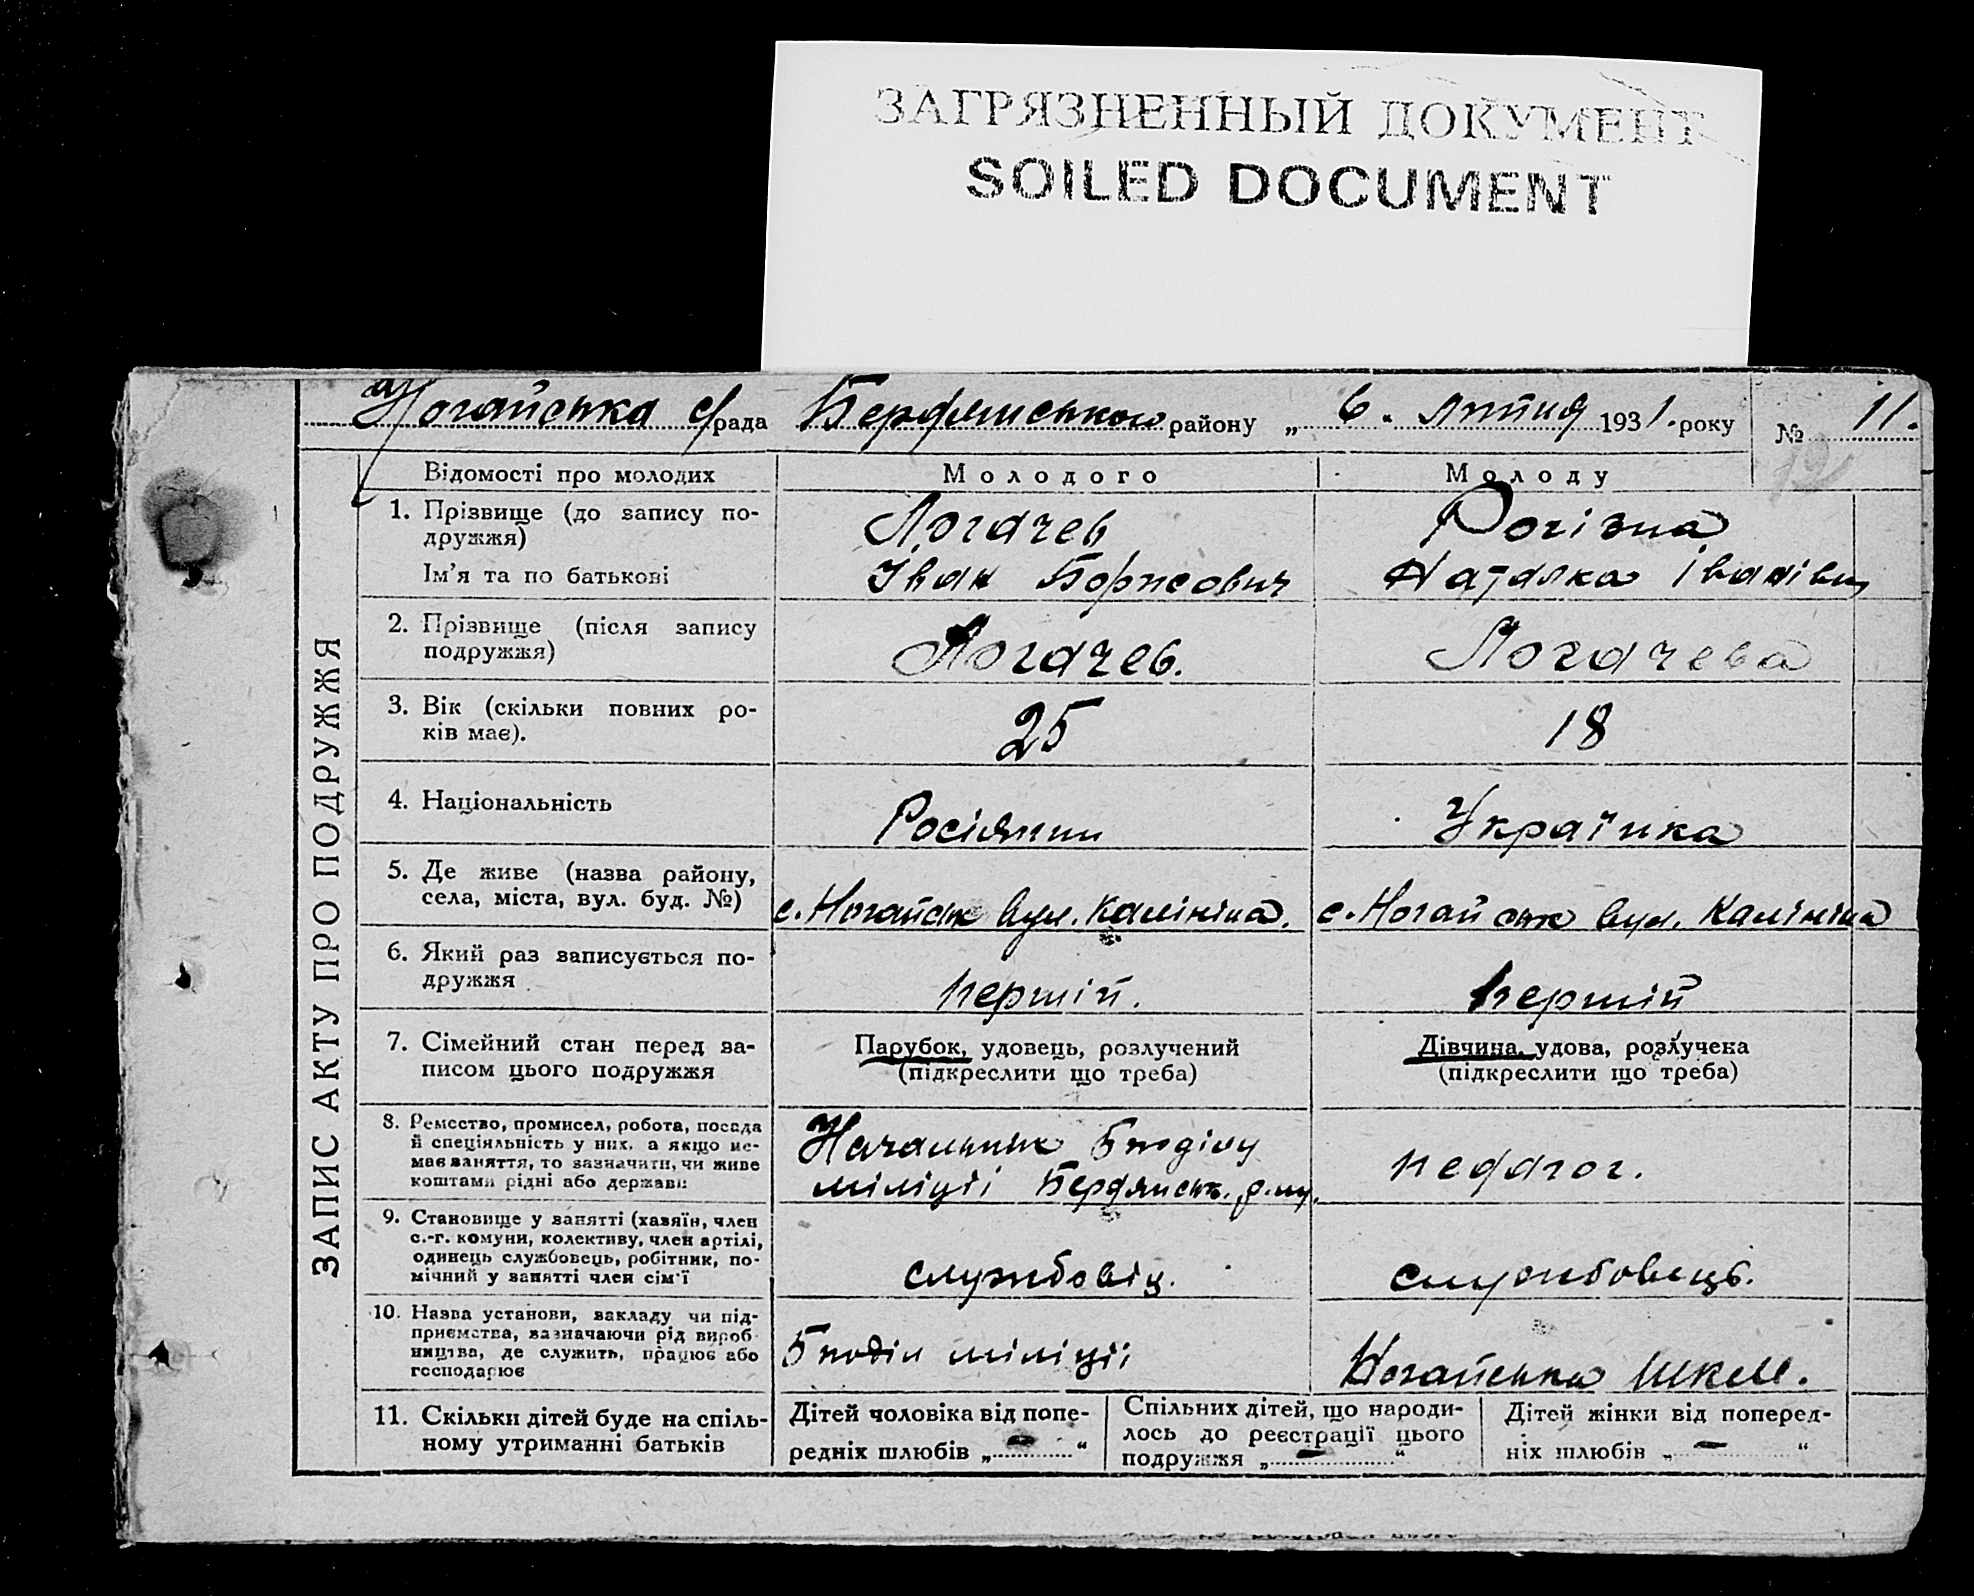 ЗАГРЯЗНЕННЫЙ ДОКУМЕНТ
SOILED DOCUMENT
Ногайська с/рада Бердянського району „ 6 “ лютня 1931. року № 11.
ЗАПИС АКТУ ПРО ПОДРУЖЖЯ
Відомості про молодих Молодого Молоду
1. Прізвище (до запису по- Логачев Рогізна
дружжя)
Ім'я та по батькові Іван Борисович Наталка Іванівн
2. Прізвище (після запису Логачев. Логачева
подружжя)
3. Вік (скільки повних ро- 25 18
ків має).
4. Національність Росіянин Українка
5. Де живе (назва району,
села, міста, вул. буд. №) с. Ногайськ вул. Калініна. с. Ногайськ вул. Калініна
6. Який раз записується по-
дружжя першій. першій
7. Сімейний стан перед за- Парубок, удовець, розлучений Дівчина, удова, розлучена
писом цього подружжя (підкреслити що треба) (підкреслити що треба)
8. Ремество, промисел, робота, посада Начальник 5 поділу
й спеціяльність у них, а якщо не-
має заняття, то зазначити, чи живе педагог.
коштами рідні або держави міліції Бердянськ.
9. Становище у занятті (хазяїн, член
с.-г. комуни, колективу, член артілі,
одинець службовець, робітник, по- службовец. службовець.
мічний у занятті член сім'ї
10. Назва установи, закладу чи під-
приємства, зазначаючи рід вироб-
ництва, де служить, працює або 5 поділ міліції Ногайська Школ.
господарює
11. Скільки дітей буде на спіль- Дітей чоловіка від попе- Спільних дітей, що народи- Дітей жінки від поперед-
ному утриманні батьків редніх шлюбів „ — “ лось до реєстрації цього ніх шлюбів „ — “
подружжя „ — “